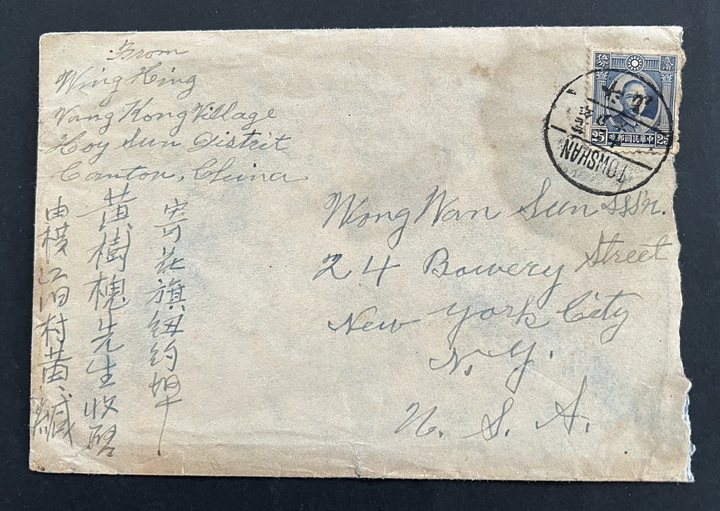 From
Wing Hing
Vang Kong Village
Hoy Sun District
Canton, China
Wong Wan Sun Assn.
24 Bowery Street
New York City
N. Y.
U. S. A.
寄花旗纽约埠
黃樹槐先生收啓
由橫江旧村黃緘
中華民國郵政
25
25
TOWSHAN